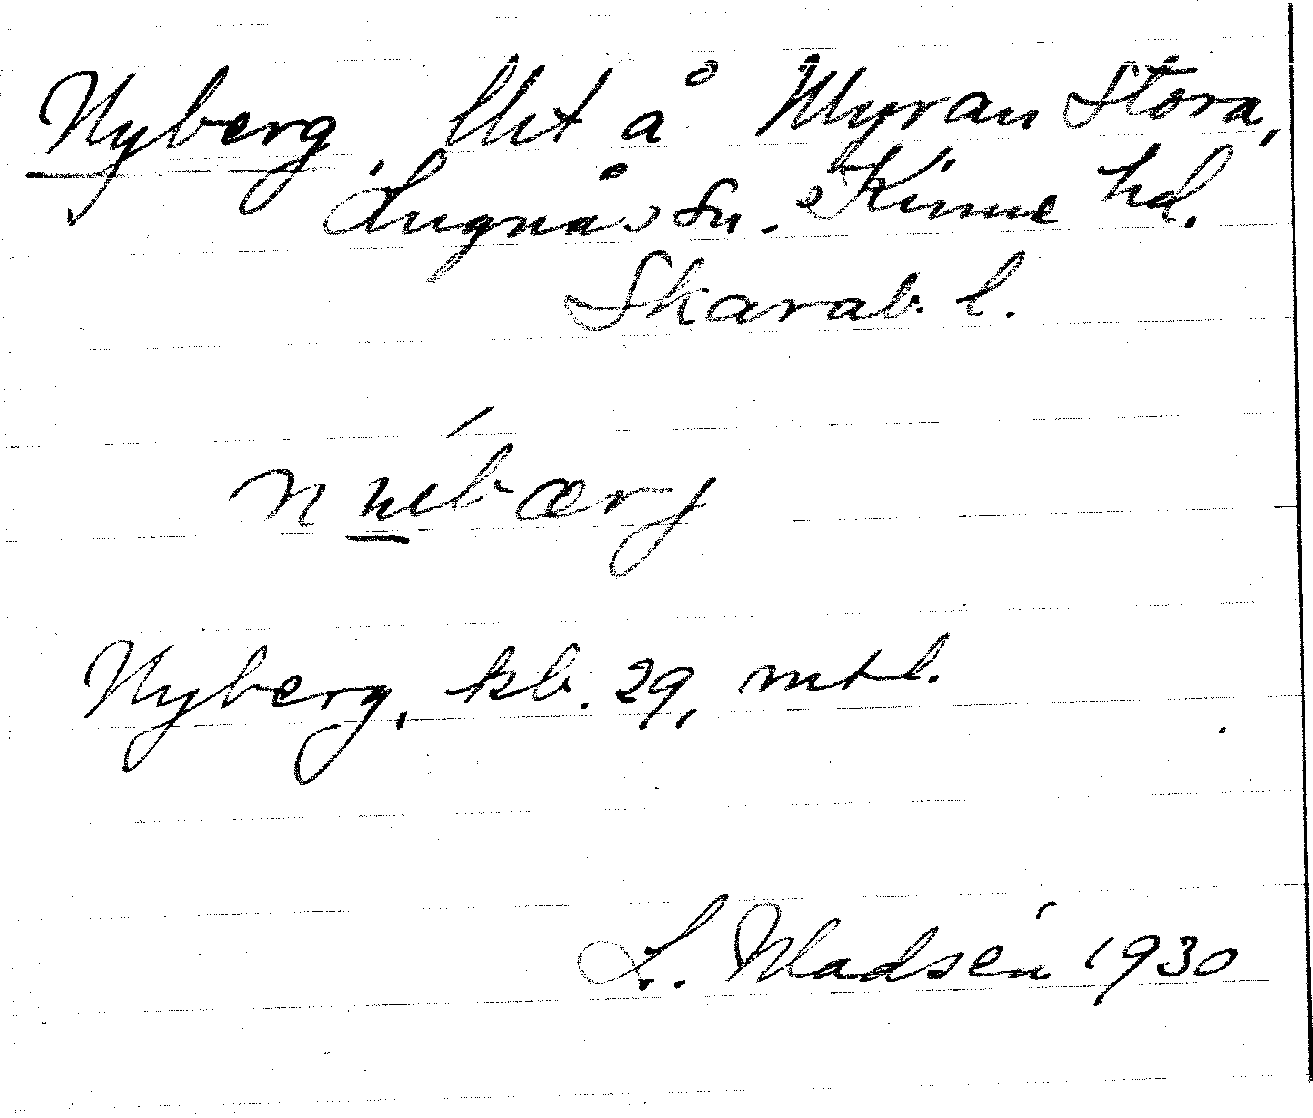 Nyberg, lht å Myran Stora,
Lugnås sn. Kinne hd.
Skarab. l.
Nyberg, kb. 29, mtl.
L. Madsén 1930